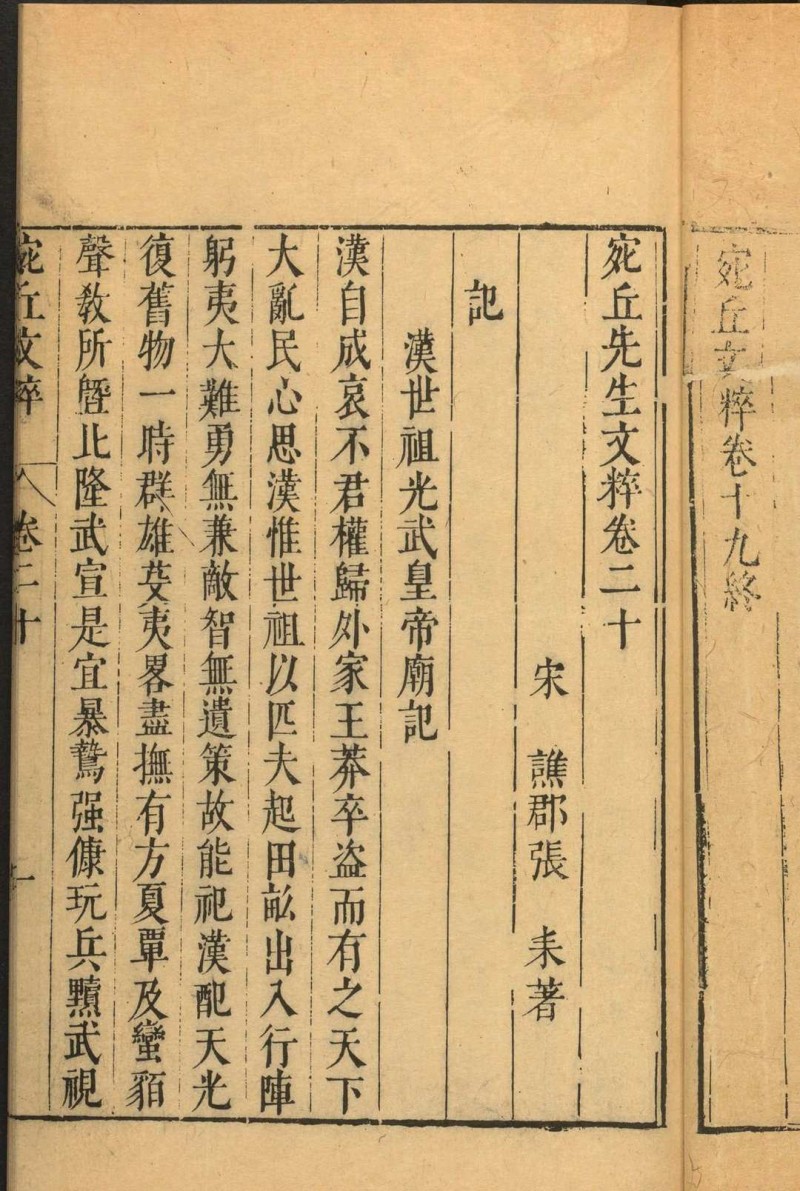 宛丘文粹卷十九終
宛丘先生文粹卷二十
宋 譙郡張 耒著
記
漢世祖光武皇帝廟記
漢自成哀不君權歸外家王莽卒盗而有之天下
大亂民心思漢惟世祖以匹夫起田畝出入行陣
躬夷大難勇無兼敵智無遺策故能祀漢配天光
復舊物一時群雄芟夷畧盡撫有方夏覃及蠻貊
聲教所曁比隆武宣是宜暴鷙强慷玩兵黷武視
宛丘文粹 卷二十 一